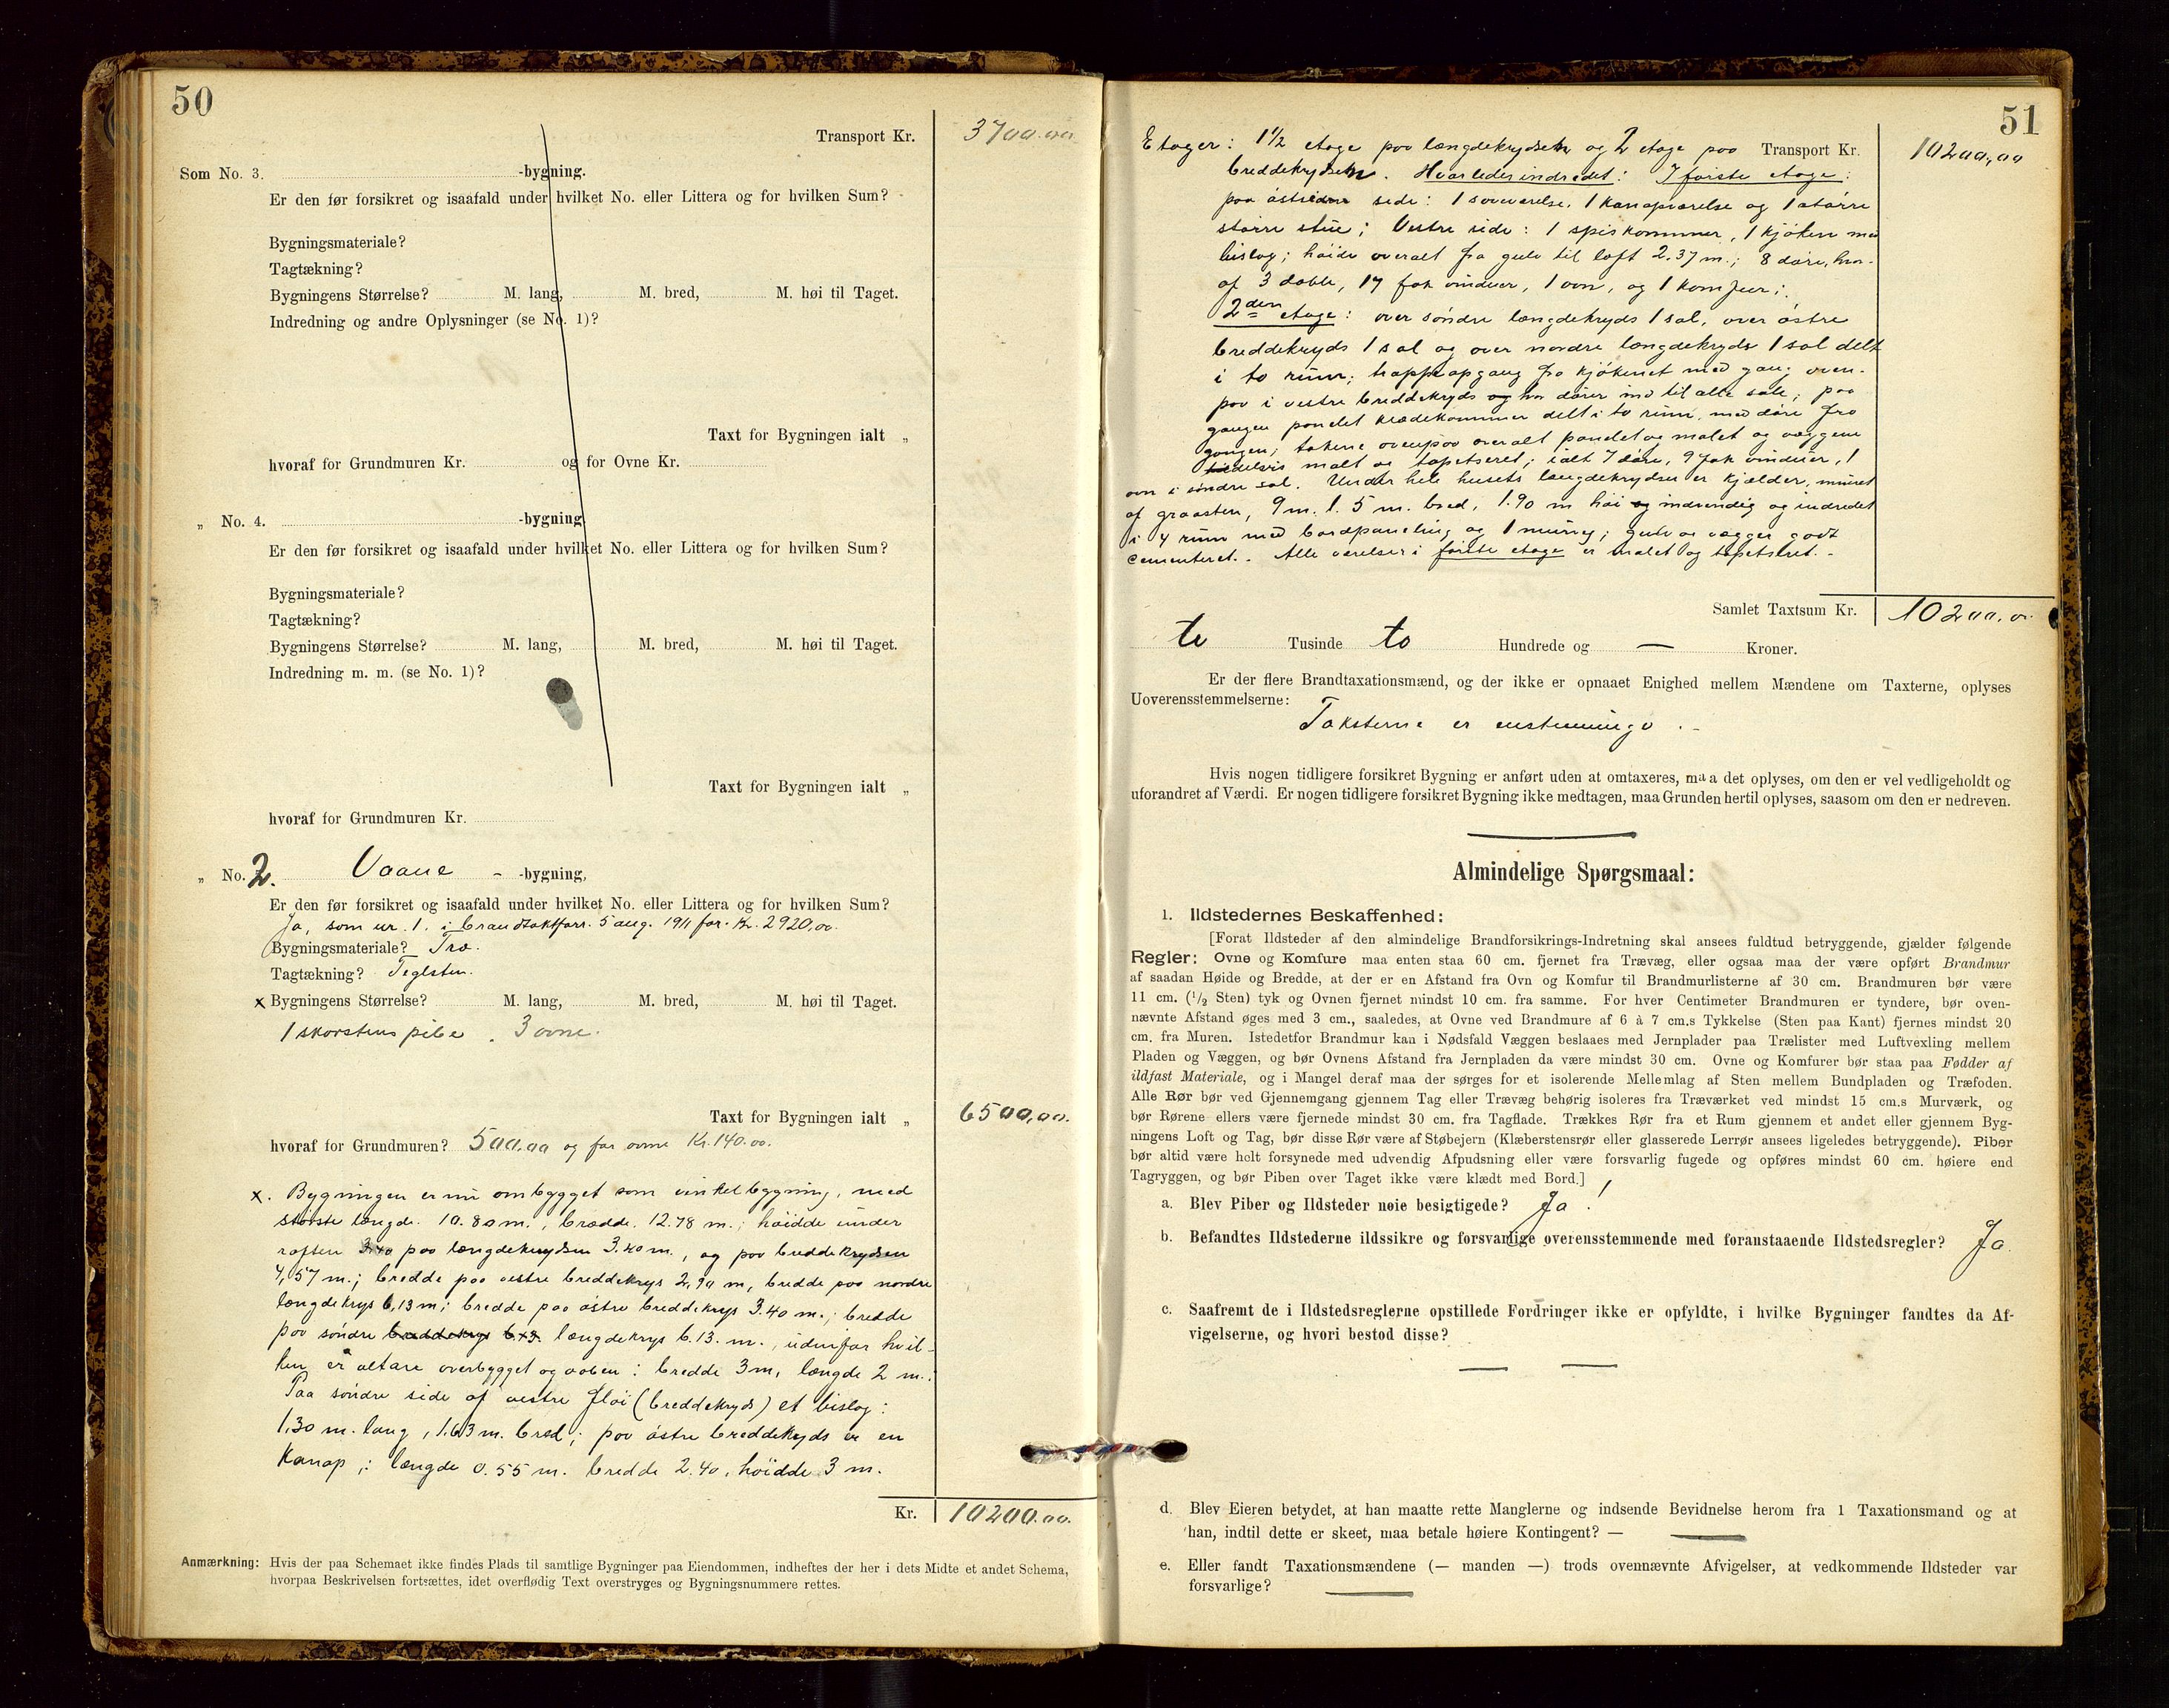 50
Transport Kr. 3700.00
Som No. 3. -bygning.
Er den før forsikret og isaafald under hvilket No. eller Littera og for hvilken Sum?
Bygningsmateriale?
Tagtækning?
Bygningens Størrelse? M. lang, M. bred, M. høi til Taget.
Indredning og andre Oplysninger (se No. 1)?
Taxt for Bygningen ialt „
hvoraf for Grundmuren Kr. og for Ovne Kr.
„ No. 4. -bygning
Er den før forsikret og isaafald under hvilket No. eller Littera og for hvilken Sum?
Bygningsmateriale?
Tagtækning?
Bygningens Størrelse? M. lang, M. bred, M. høi til Taget.
Indredning m. m. (se No. 1)?
Taxt for Bygningen ialt „
hvoraf for Grundmuren Kr.
„ No. 2. Vaane - -bygning,
Er den før forsikret og isaafald under hvilket No. eller Littera og for hvilken Sum?
Ja, som nr. 1. i brandtaktforr. 5 aug. 1911 for Kr. 2920,00.
Bygningsmateriale? Træ.
Tagtækning? Teglsten.
x Bygningens Størrelse? M. lang, M. bred, M. høi til Taget.
1 skorstens pibe . 3 ovne.
Taxt for Bygningen ialt „ 6500,00.
hvoraf for Grundmuren? 500.00 og for ovne Kr. 140.00.
x. Bygningen er nu ombygget som vinkelbygning, med
største længde 10.80 m., brædde 12.78 m.; høidde under
raften 3.40 paa længdekrydsen 3.40 m., og paa breddekrydsen
4,57 m.; bredde paa vestre breddekrys 2,90 m, bredde paa nordre
længdekrys 6,13 m; bredde paa østre breddekrys 3.40 m.; bredde
paa søndre breddekrys 6.13. længdekrys 6.13. m., udenfor hvil-
ken er altare overbygget og aaben: bredde 3 m, længde 2 m.;
Paa søndre side af vestre fløi (breddekryds) et bislag:
1,30 m. lang, 1.63 m. bred; paa østre breddekryds er en
Kanap,: længde 0.55 m. bredde 2.40, høidde 3 m.
Kr. 10200.00.
Anmærkning: Hvis der paa Schemaet ikke findes Plads til samtlige Bygninger paa Eiendommen, indheftes der her i dets Midte et andet Schema,
hvorpaa Beskrivelsen fortsættes, idet overflødig Text overstryges og Bygningsnummere rettes.
51
Etager: 1 1/2 etage paa længdekrydsen og 2 etage paa Transport Kr. 10200,00
breddekrydsen. Hvorledes indredet: I første etage:
paa østsidens side: 1 soveværelse, 1 kanapværelse og 1 større
større stue; Vestre side: 1 spiskammer, 1 kjøken med
bislag; høide overalt fra gulv til loft 2.37 m.; 8 døre, hvor-
af 3 doble, 17 fag vinduer, 1 ovn, og 1 komfur;.
2den etage: over søndre længdekryds 1 sal, over østre
breddekryds 1 sal og over nordre længdekryds 1 sal delt
i to rum; trappeopgang fra kjøkenet med gang oven-
paa i vestre breddekryds og har dører ind til alle sale; paa
gangen panelet klædekammer delt i to rum, med døre fra
gangen; takene ovenpaa overalt panelet og malet og væggene
tildelsvis malt og tapetseret; ialt 7 døre, 9 fag vinduer, 1
ovn i søndre sal. Under hele husets længdekrydsen er kjælder, muret
af graasten, 9 m. l. 5 m. bred, 1.90 m høi og indvendig og indredet
i 4 rum med bordpaneling og 1 muring; gulv og vægger godt
cementeret.. Alle værelser i første etage er malet og tapetseret. -
Samlet Taxtsum Kr. 10200.00
ti Tusinde to Hundrede og — Kroner.
Er der flere Brandtaxationsmænd, og der ikke er opnaaet Enighed mellem Mændene om Taxterne, oplyses
Uoverensstemmelserne:
Taksterne er enstemmige . -
Hvis nogen tidligere forsikret Bygning er anført uden at omtaxeres, maa det oplyses, om den er vel vedligeholdt og
uforandret af Værdi. Er nogen tidligere forsikret Bygning ikke medtagen, maa Grunden hertil oplyses, saasom om den er nedreven.
Almindelige Spørgsmaal:
1. Ildstedernes Beskaffenhed:
[Forat Ildsteder af den almindelige Brandforsikrings-Indretning skal ansees fuldtud betryggende, gjælder følgende
Regler: Ovne og Komfure maa enten staa 60 cm. fjernet fra Trævæg, eller ogsaa maa der være opført Brandmur
af saadan Høide og Bredde, at der er en Afstand fra Ovn og Komfur til Brandmurlisterne af 30 cm. Brandmuren bør være
11 cm. (1/2 Sten) tyk og Ovnen fjernet mindst 10 cm. fra samme. For hver Centimeter Brandmuren er tyndere, bør oven-
nævnte Afstand øges med 3 cm., saaledes, at Ovne ved Brandmure af 6 à 7 cm.s Tykkelse (Sten paa Kant) fjernes mindst 20
cm. fra Muren. Istedetfor Brandmur kan i Nødsfald Væggen beslaaes med Jernplader paa Trælister med Luftvexling mellem
Pladen og Væggen, og bør Ovnens Afstand fra Jernpladen da være mindst 30 cm. Ovne og Komfurer bør staa paa Fødder af
ildfast Materiale, og i Mangel deraf maa der sørges for et isolerende Mellemlag af Sten mellem Bundpladen og Træfoden.
Alle Rør bør ved Gjennemgang gjennem Tag eller Trævæg behørig isoleres fra Træværket ved mindst 15 cm.s Murværk, og
bør Rørene ellers være fjernede mindst 30 cm. fra Tagflade. Trækkes Rør fra et Rum gjennem et andet eller gjennem Byg-
ningens Loft og Tag, bør disse Rør være af Støbejern (Klæberstensrør eller glasserede Lerrør ansees ligeledes betryggende). Piber
bør altid være helt forsynede med udvendig Afpudsning eller være forsvarlig fugede og opføres mindst 60 cm. høiere end
Tagryggen, og bør Piben over Taget ikke være klædt med Bord.]
a. Blev Piber og Ildsteder nøie besigtigede? Ja!
b. Befandtes Ildstederne ildssikre og forsvarlige overensstemmende med foranstaaende Ildstedsregler? Ja.
c. Saafremt de i Ildstedsreglerne opstillede Fordringer ikke er opfyldte, i hvilke Bygninger fandtes da Af-
vigelserne, og hvori bestod disse?
— —
d. Blev Eieren betydet, at han maatte rette Manglerne og indsende Bevidnelse herom fra 1 Taxationsmand og at
han, indtil dette er skeet, maa betale høiere Kontingent? — —
e. Eller fandt Taxationsmændene (— manden —) trods ovennævnte Afvigelser, at vedkommende Ildsteder var
forsvarlige? —